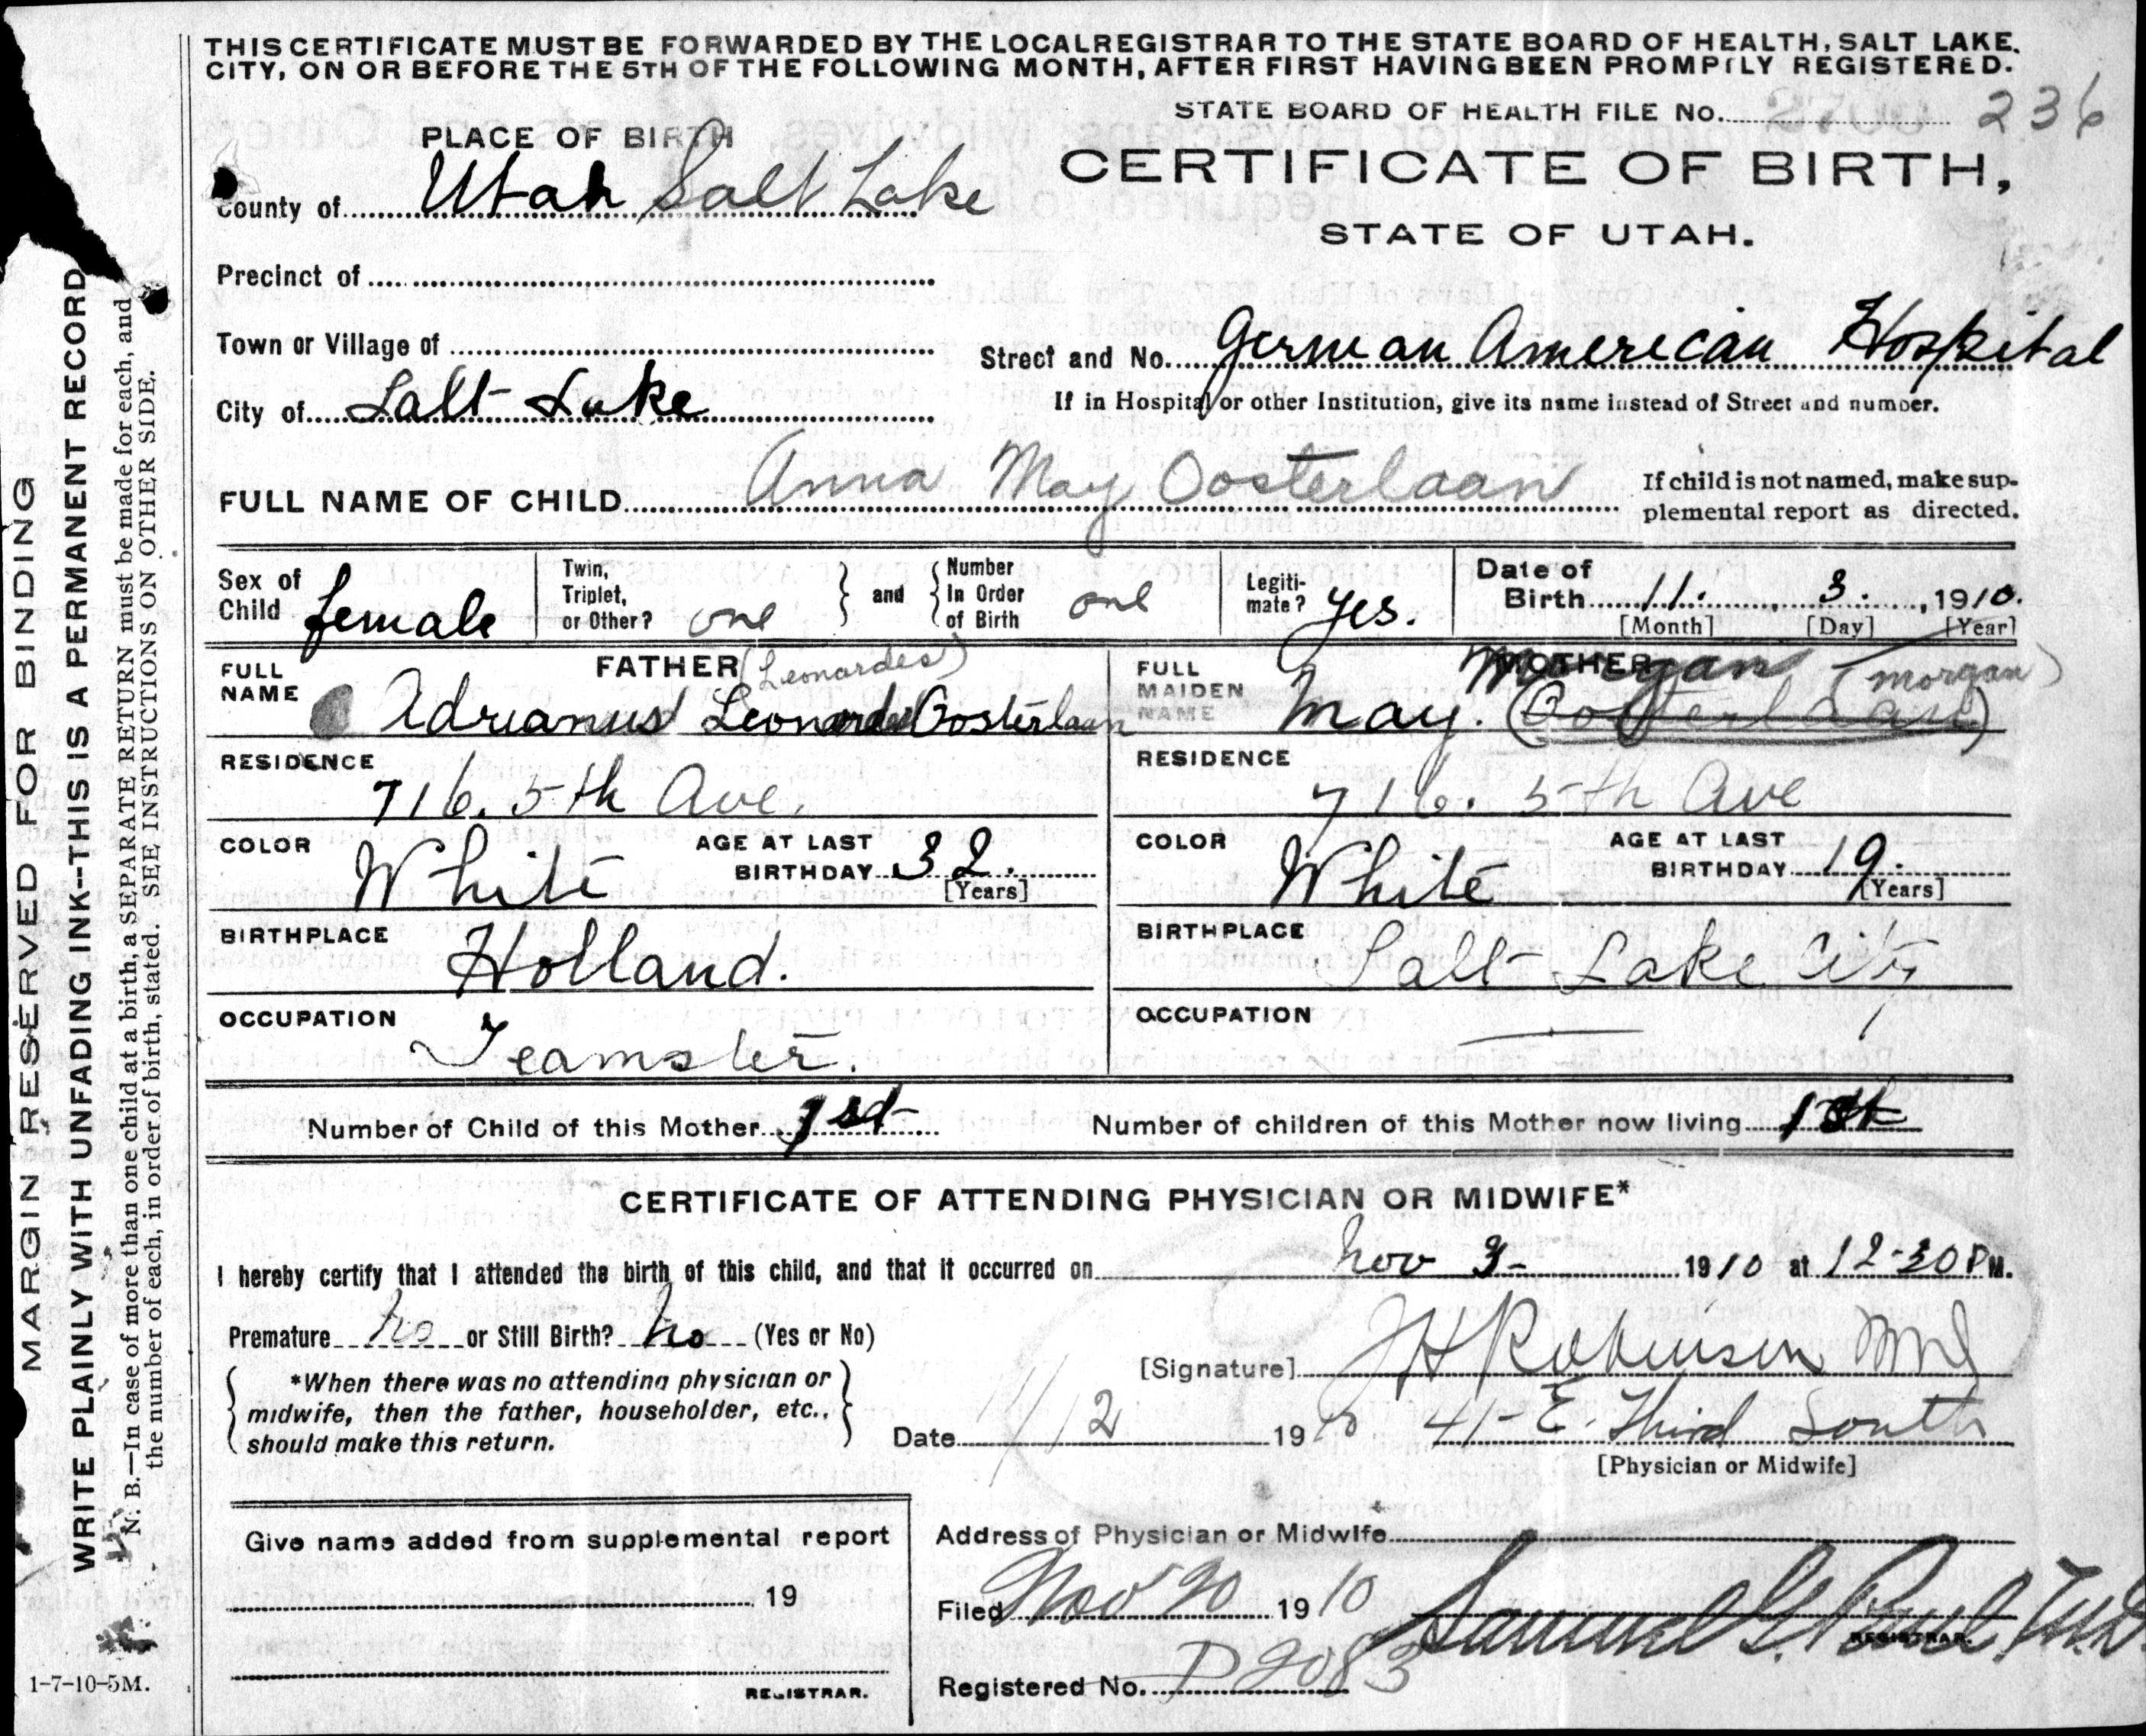 THIS CERTIFICATE MUST BE FORWARDED BY THE LOCAL REGISTRAR TO THE STATE BOARD OF HEALTH, SALT LAKE
CITY, ON OR BEFORE THE 5TH OF THE FOLLOWING MONTH, AFTER FIRST HAVING BEEN PROMPTLY REGISTERED.
STATE BOARD OF HEALTH FILE No. 236
PLACE OF BIRTH
CERTIFICATE OF BIRTH,
County of Utah Salt Lake
STATE OF UTAH.
Precinct of
Town or Village of
Street and No. German American Hospital
City of Salt Lake
If in Hospital or other Institution, give its name instead of Street and number.
FULL NAME OF CHILD Anna May Oosterlaan
If child is not named, make sup-
plemental report as directed.
Sex of Child female
Twin, Triplet, or Other? one
and
Number In Order of Birth one
Legiti-mate? yes.
Date of Birth 11. 3. , 1910.
[Month] [Day] [Year]
FATHER (Leonardes)
FULL NAME Adrianus Leonardes Oosterlaan
RESIDENCE
716. 5th Ave.
COLOR White
AGE AT LAST BIRTHDAY 32.
[Years]
BIRTHPLACE Holland.
OCCUPATION Teamster.
MOTHER Morgan (morgan)
FULL MAIDEN NAME May. (Oosterlaan)
RESIDENCE
716. 5th Ave
COLOR White
AGE AT LAST BIRTHDAY 19.
[Years]
BIRTHPLACE Salt Lake City
OCCUPATION
Number of Child of this Mother 1st
Number of children of this Mother now living 1
CERTIFICATE OF ATTENDING PHYSICIAN OR MIDWIFE*
I hereby certify that I attended the birth of this child, and that it occurred on Nov 3- 1910 at 12-30 P M.
Premature no or Still Birth? no (Yes or No)
[Signature] J H Robinson MD
*When there was no attending physician or
midwife, then the father, householder, etc.,
should make this return.
Date 11/12 1910 41- E. Third South
[Physician or Midwife]
Give name added from supplemental report
19
REGISTRAR.
Address of Physician or Midwife
Filed Nov 20 1910 Samuel G. Paul, M.D.
REGISTRAR.
Registered No. P 2083
MARGIN RESERVED FOR BINDING
WRITE PLAINLY WITH UNFADING INK--THIS IS A PERMANENT RECORD
N. B.—In case of more than one child at a birth, a SEPARATE RETURN must be made for each, and
the number of each, in order of birth, stated. SEE INSTRUCTIONS ON OTHER SIDE.
1-7-10-5M.